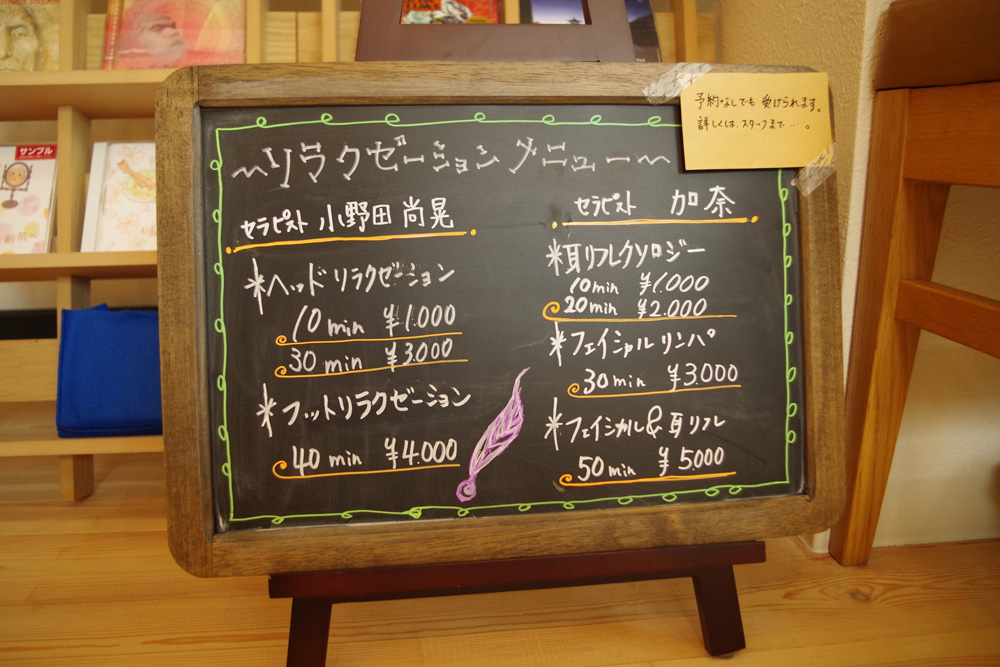 サンプル
予約なしでも 受けられます。
詳しくは、スタッフまで…。
〜リラクゼーションメニュー〜
セラピスト 小野田 尚晃
*ヘッドリラクゼーション
10min ¥1.000
30min ¥3.000
*フットリラクゼーション
40min ¥4.000
セラピスト 加奈
*耳リフレクソロジー
10min ¥1.000
20min ¥2.000
*フェイシャルリンパ
30min ¥3.000
*フェイシャル&耳リフレ
50min ¥5.000